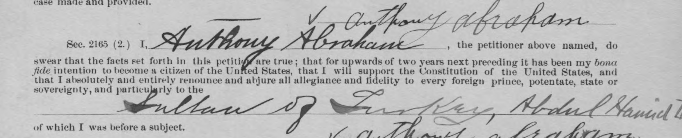 case made and provided.
✓ anthony abraham
Sec. 2165 (2.) I, Anthony Abraham, the petitioner above named, do
swear that the facts set forth in this petition are true; that for upwards of two years next preceding it has been my bona
fide intention to become a citizen of the United States, that I will support the Constitution of the United States, and
that I absolutely and entirely renounce and abjure all allegiance and fidelity to every foreign prince, potentate, state or
sovereignty, and particularly to the
Sultan of Turkey, Abdul Hamid
of which I was before a subject.
✓ anthony abraham